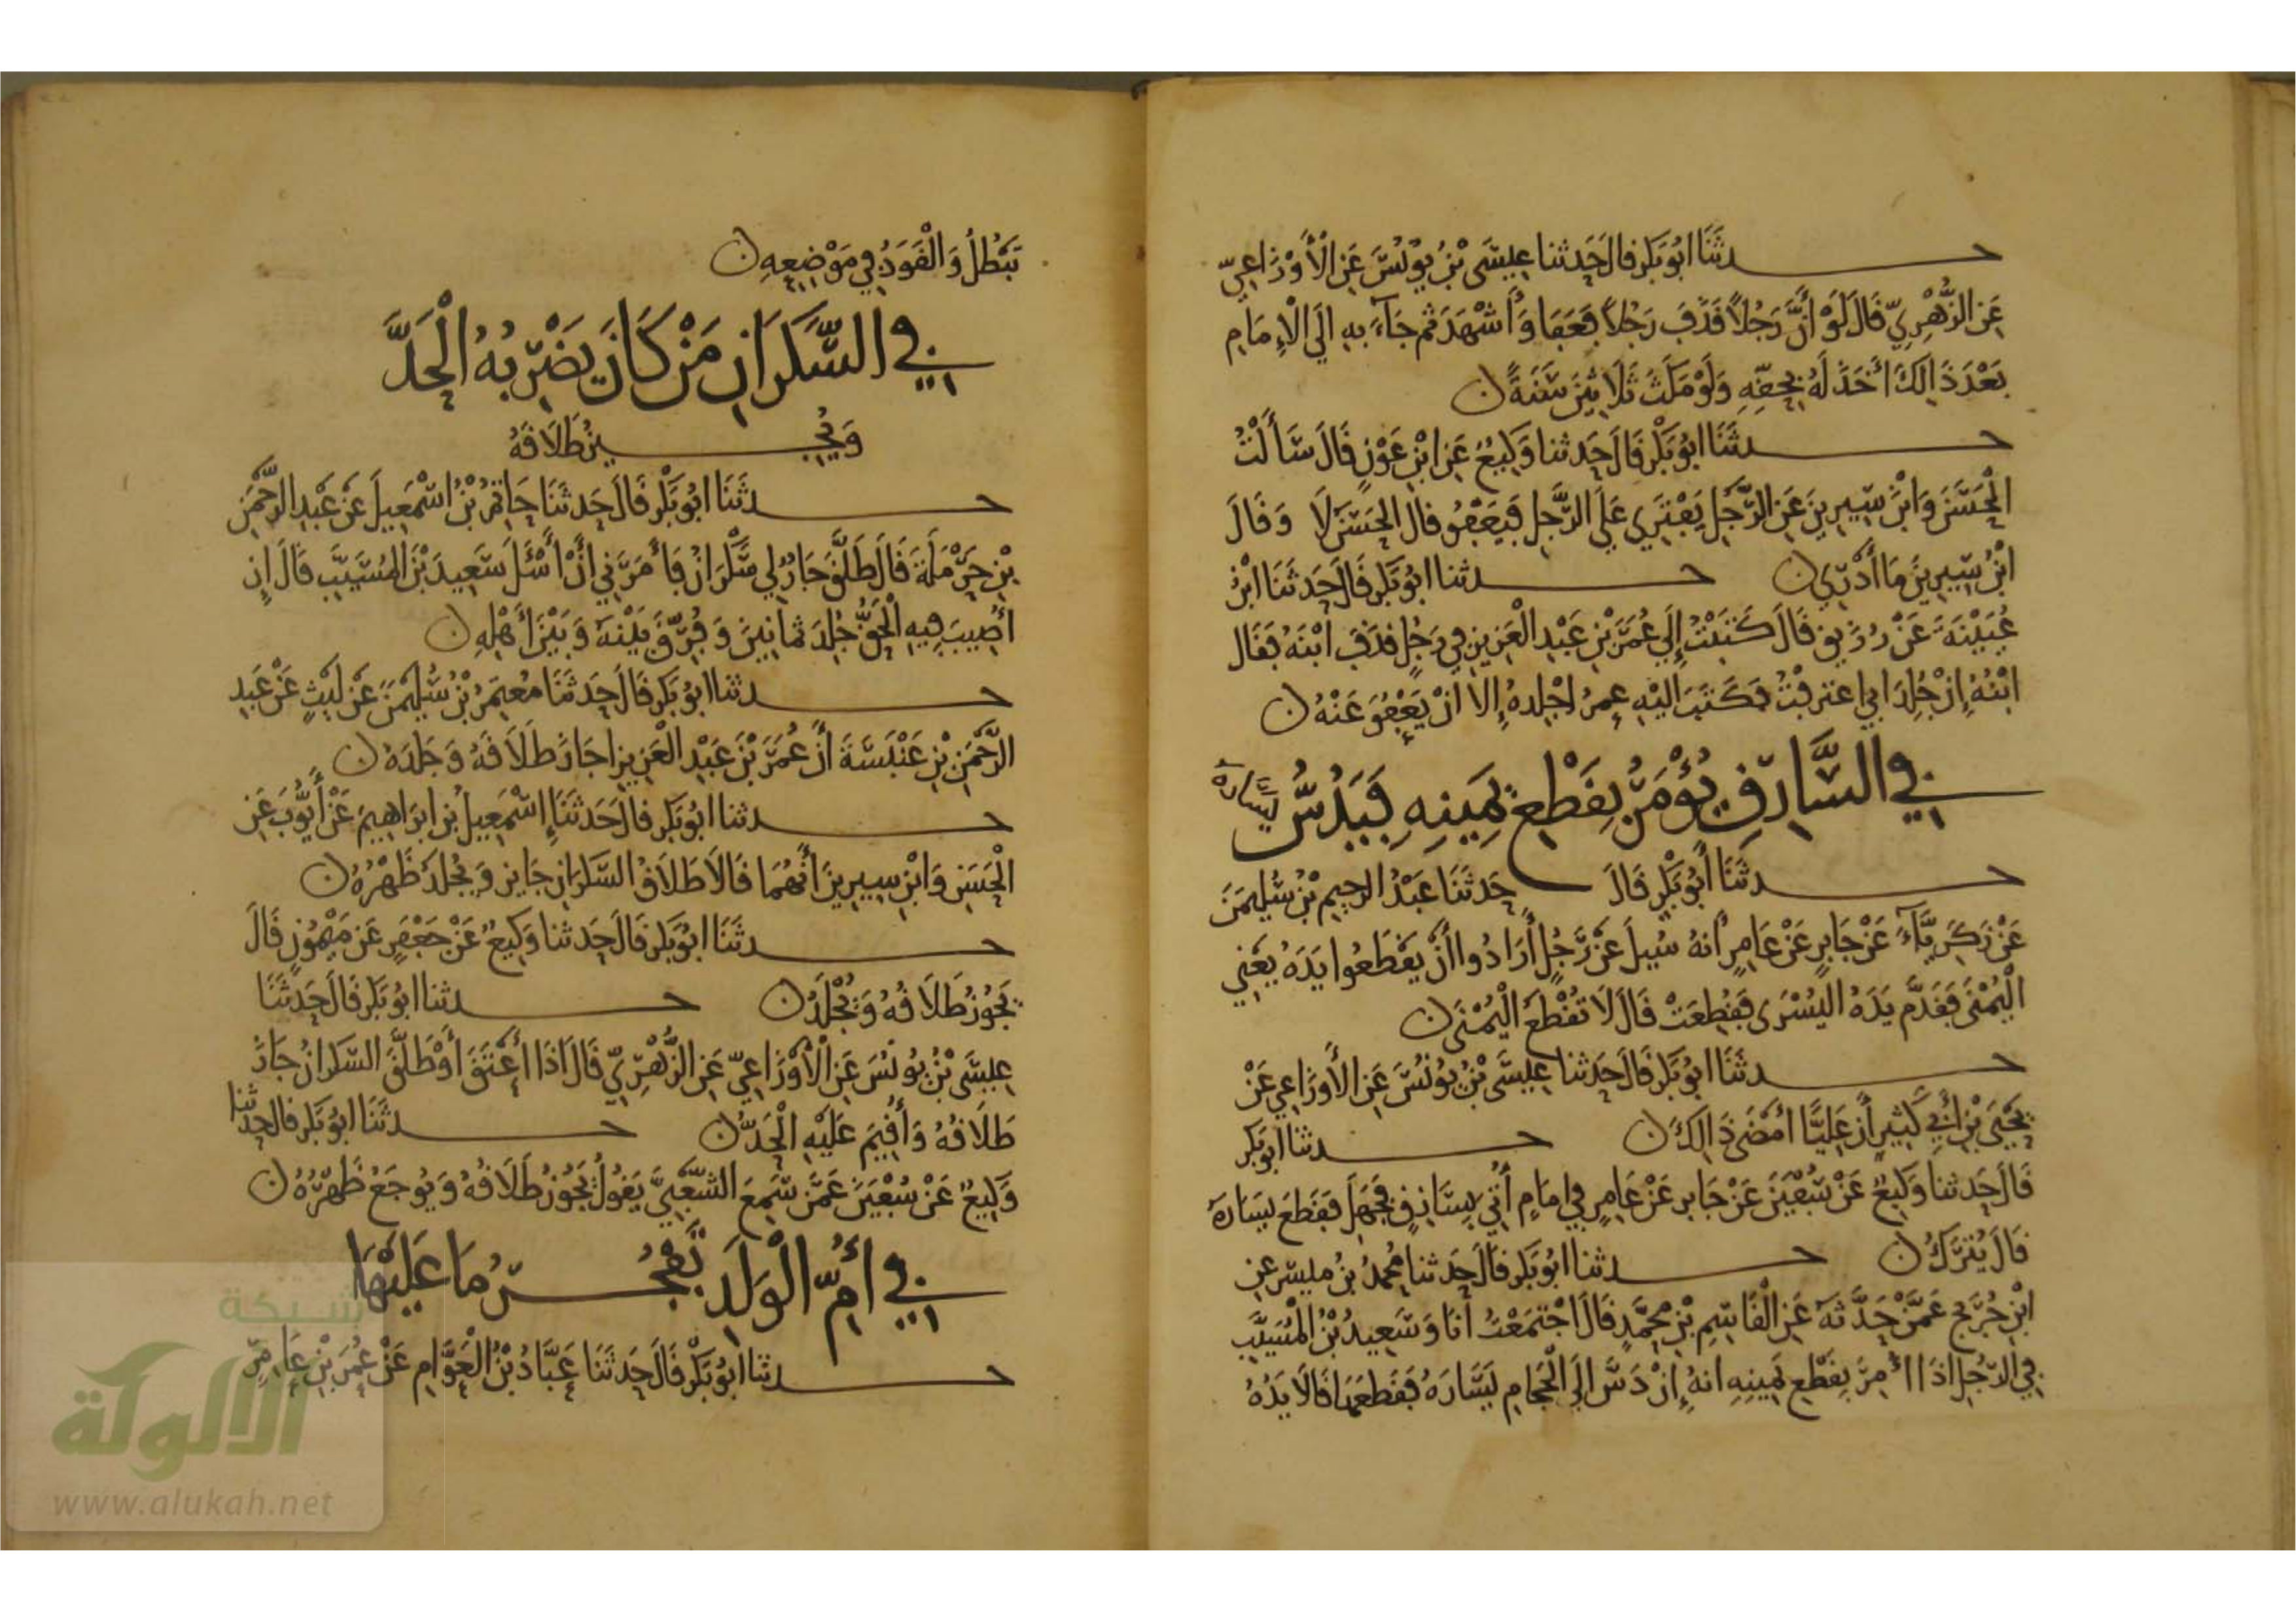 حدثنا أبو بكر قال حدثنا عيسى بن يونس عن الأوزاعي
عن الزهري قال لو أن رجلا قذف رجلا فعفا وأشهد ثم جاء به إلى الإمام
بعد ذالك أخذ له بحقه ولو مكث ثلاثين سنة
حدثنا أبو بكر قال حدثنا وكيع عن ابن عون قال سألت
الحسن وابن سيرين عن الرجل يفتري على الرجل فيعفو قال الحسن لا وقال
ابن سيرين ما أدري حدثنا أبو بكر قال حدثنا ابن
عيينة عن رزيق قال كتبت إلى عمر بن عبد العزيز في رجل قذف ابنه فقال
ابنه إن جلد أبي اعترفت فكتب إليه عمر اجلده إلا أن يعفو عنه
في السارق يؤمر بقطع يمينه فيدس يساره
حدثنا أبو بكر قال حدثنا عبد الرحيم بن سليمن
عن زكرياء عن جابر عن عامر أنه سيل عن رجل أرادوا أن يقطعوا يده يعني
اليمنى فقدم يده اليسرى فقطعت قال لا تقطع اليمنى
حدثنا أبو بكر قال حدثنا عيسى بن يونس عن الأوزاعي عن
يحيى بن أبي كثير أن عليا أمضى ذالك حدثنا أبو بكر
قال حدثنا وكيع عن سفين عن جابر عن عامر في إمام أتي بسارق فجهل فقطع يساره
قال يترك حدثنا أبو بكر قال حدثنا محمد بن ميسر عن
ابن جريج عمن حدثه عن القاسم بن محمد قال اجتمعت أنا وسعيد بن المسيب
في الرجل إذا أمر بقطع يمينه أنه إن دس إلى الحجام يساره فقطعها قالا يده
تبطل والقود في موضعه
في السكران من كان يضربه الحد
ويجيز طلاقه
حدثنا أبو بكر قال حدثنا حاتم بن اسمعيل عن عبد الرحمن
بن حرملة قال طلق جار لي سكران فأمرني أن أسئل سعيد بن المسيب قال إن
أصيب فيه الحق جلد ثمانين وفرق بينه وبين أهله
حدثنا أبو بكر قال حدثنا معتمر بن سليمن عن ليث عن عبد
الرحمن بن عنبسة أن عمر بن عبد العزيز اجاز طلاقه وجلده
حدثنا أبو بكر قال حدثنا إسمعيل بن ابراهيم عن أيوب عن
الحسن وابن سيرين أنهما قالا طلاق السكران جايز ويجلد ظهره
حدثنا أبو بكر قال حدثنا وكيع عن جعفر عن ميمون قال
يجوز طلاقه ويجلد حدثنا أبو بكر قال حدثنا
عيسى بن يونس عن الأوزاعي عن الزهري قال اذا أعتق أو طلق السكران جاز
طلاقه وأقيم عليه الحد حدثنا أبو بكر قال حدثنا
وكيع عن سفين عمن سمع الشعبي يقول يجوز طلاقه ويوجع ظهره
في أم الولد تفجر ما عليها
حدثنا أبو بكر قال حدثنا عباد بن العوام عن عمر بن عامر
شبكة
الألوكة
www.alukah.net